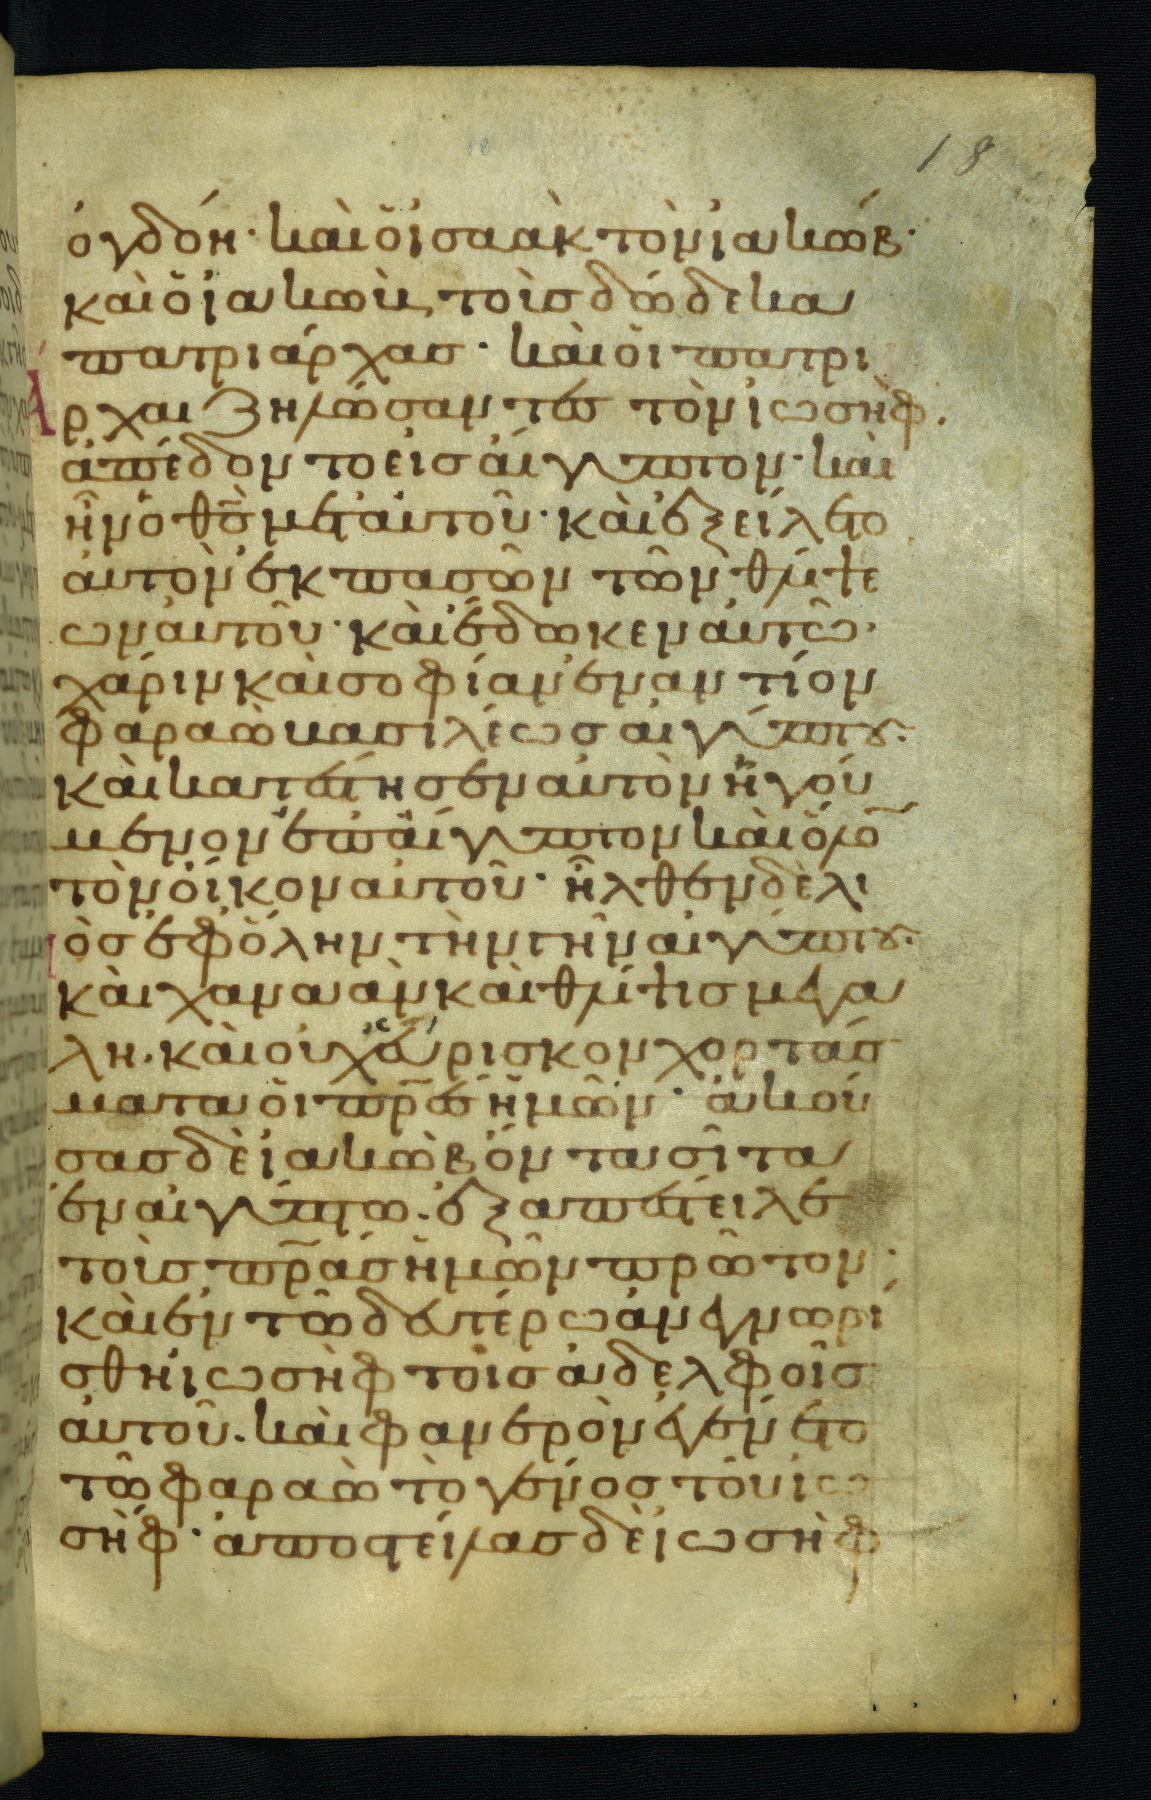 18
ὀγδόη· καὶ ὁ ἰσαὰκ τὸν ἰακώβ·
καὶ ὁ ἰακὼβ τοὺς δώδεκα
πατριάρχας· καὶ οἱ πατρι
άρχαι ζηλώσαντες τὸν ἰωσὴφ.
ἀπέδοντο εἰς αἴγυπτον· καὶ
ἦν ὁ θς μετ' αὐτοῦ· καὶ ἐξείλετο
αὐτὸν ἐκ πασῶν τῶν θλίψε
ων αὐτοῦ· καὶ ἔδωκεν αὐτῶ·
χάριν καὶ σοφίαν ἐναντίον
φαραὼ βασιλέως αἰγύπτου.
καὶ κατέστησεν αὐτὸν ἡγού
μενον ἐπ' αἴγυπτον καὶ ὅλον
τὸν οἶκον αὐτοῦ· ἦλθεν δὲ λι
μὸς ἐφ' ὅλην τὴν γῆν αἰγύπτου.
καὶ χαναὰν καὶ θλίψις μεγά
λη. καὶ οὐχ εὕρισκον χορτάσ
ματα οἱ πρες ἡμῶν· ἀκού
σας δὲ ἰακὼβ ὄντα σῖτα
ἐν αἰγύπτω. ἐξαπέστειλε
τοὺς πρας ἡμῶν πρῶτον·
καὶ ἐν τῶ δευτέρω ἀνεγνωρί
σθη ἰωσὴφ τοῖς ἀδελφοῖς
αὐτοῦ. καὶ φανερὸν ἐγένετο
τῶ φαραὼ τὸ γένος τοῦ ἰω
σὴφ· ἀποστείλας δὲ ἰωσὴφ